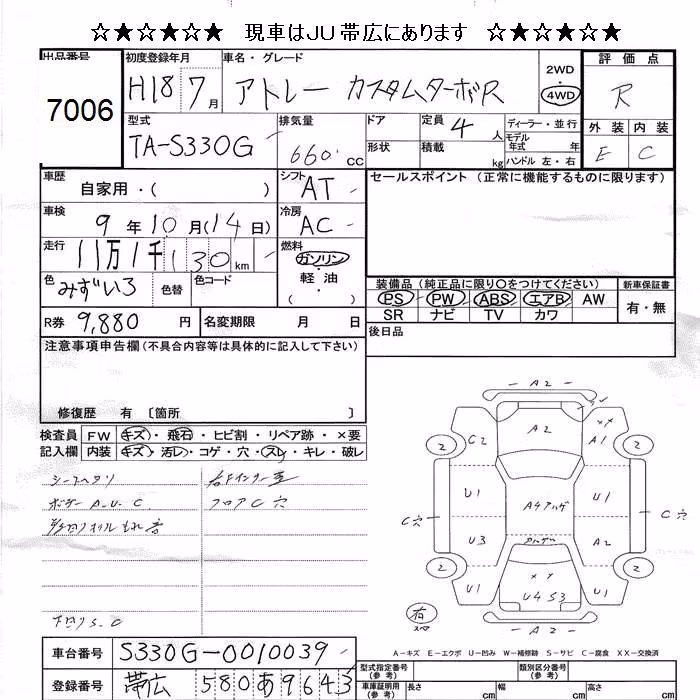 ☆★☆★☆★ 現車はJU帯広にあります ☆★☆★☆★
出品番号 7006
初度登録年月 H18 7月
車名・グレード アトレー カスタムターボR
2WD 4WD
評価点 R
外装 E 内装 C
型式 TA-S330G
排気量 660 cc
ドア 形状
定員 4 人
積載 kg
ディーラー・並行
モデル年式 年
ハンドル 左・右
車歴 自家用・( )
シフト AT
セールスポイント (正常に機能するものに限ります)
車検 9年10月(14日)
冷房 AC
走行 11万1千130km
燃料 ガソリン 軽油 ( )
色 みずいろ 色替 色コード
装備品 (純正品に限り○をつけてください) 新車保証書
PS PW ABS エアB AW 有・無
SR ナビ TV カワ
R券 9,880円 名変期限 月 日
後日品
注意事項申告欄 (不具合内容等は具体的に記入して下さい)
修復歴 有 〔箇所 〕
検査員 FW キズ・飛石・ヒビ割・リペア跡・×要
記入欄 内装 キズ・汚レ・コゲ・穴・スレ・キレ・破レ
シートヘタリ
ボデーA.U.C.
フロアC穴
下回りS.C
A2
A2
C2
A1
2
2
U1
U1
A4アルゲ
C穴
C穴
U3
A2
2
2
U1
U4S3
U1
有
A2
A-キズ E-エクボ U-凹み W-補修跡 S-サビ C-腐食 XX-交換済
車台番号 S330G-0010039
型式指定番号 (参考) 類別区分番号 (参考)
登録番号 帯広 580あ9643
車庫証明用 (参考) 長さ cm 幅 cm 高さ cm